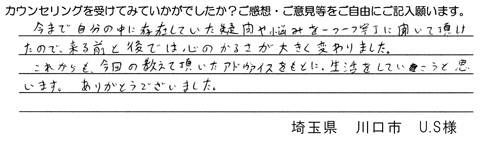 カウンセリングを受けてみていかがでしたか?ご感想・ご意見等をご自由にご記入願います。
今まで自分の中に存在していた疑問や悩みを一つ一つ丁寧に聞いて頂け
たので、来る前と後では心のかるさが大きく変わりました。
これからも、今回の教えて頂いたアドヴァイスをもとに、生活をしていこうと思
います。ありがとうございました。
埼玉県 川口市 U.S様